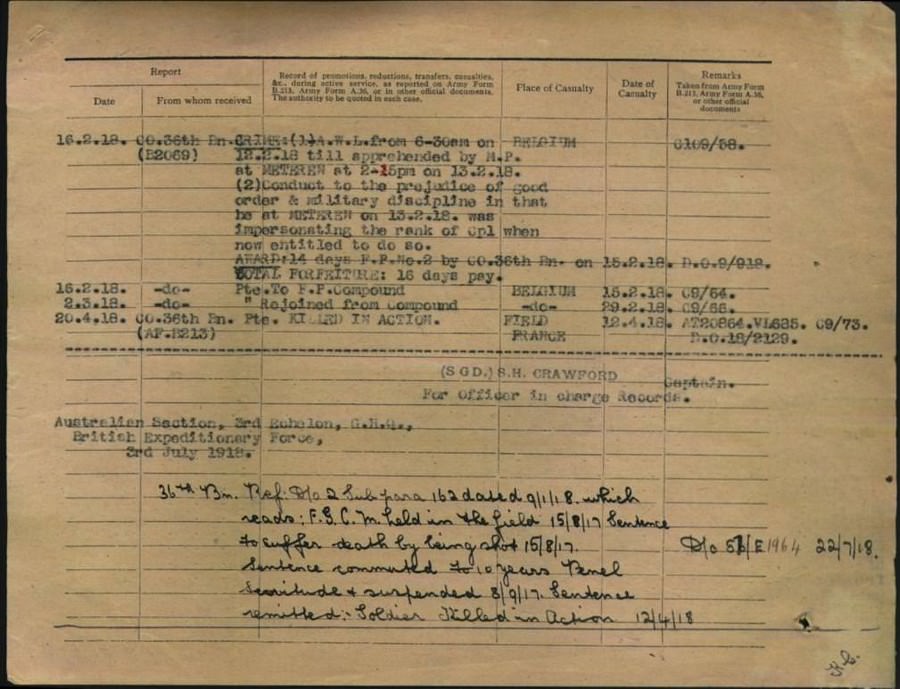 Report
Record of promotions, reductions, transfers, casualties,
&c., during active service, as reported on Army Form
B.213, Army Form A.36, or in other official documents.
The authority to be quoted in each case.
Place of Casualty
Date of
Casualty
Remarks
Taken from Army Form
B.213, Army Form A.36,
or other official
documents
Date From whom received
16.2.18. CO.36th Bn. CRIME:(1)A.W.L.from 6-30am on BELGIUM C109/58.
(B2069) 12.2.18 till apprehended by M.P.
at METEREN at 2-15pm on 13.2.18.
(2)Conduct to the prejudice of good
order & military discipline in that
he at METEREN on 13.2.18. was
impersonating the rank of Cpl when
now entitled to do so.
AWARD:14 days F.P.No.2 by CO.36th Bn. on 15.2.18. D.O.9/918.
TOTAL FORFEITURE: 16 days pay.
16.2.18. -do- Pte.To F.P.Compound BELGIUM 15.2.18. C9/64.
2.3.18. -do- " Rejoined from Compound -do- 29.2.18. C9/66.
20.4.18. CO.36th Bn. Pte. KILLED IN ACTION. FIELD 12.4.18. AT20864.VL685. C9/73.
(AF.B213) FRANCE D.O.18/2129.
(SGD.) S.H. CRAWFORD Captain.
For Officer in charge Records.
Australian Section, 3rd Echelon, G.H.Q.,
British Expeditionary Force,
3rd July 1918.
36th Bn. Ref: D/o 2 Sub para 162 dated 9/1/18. which
reads: F.G.C.M. held in the field 15/8/17 Sentence
to suffer death by being shot 15/8/17. D/o 22/7/18.
Sentence commuted to 10 years Penel
Servitude & suspended 8/9/17. Sentence
remitted: Soldier Killed in Action 12/4/18